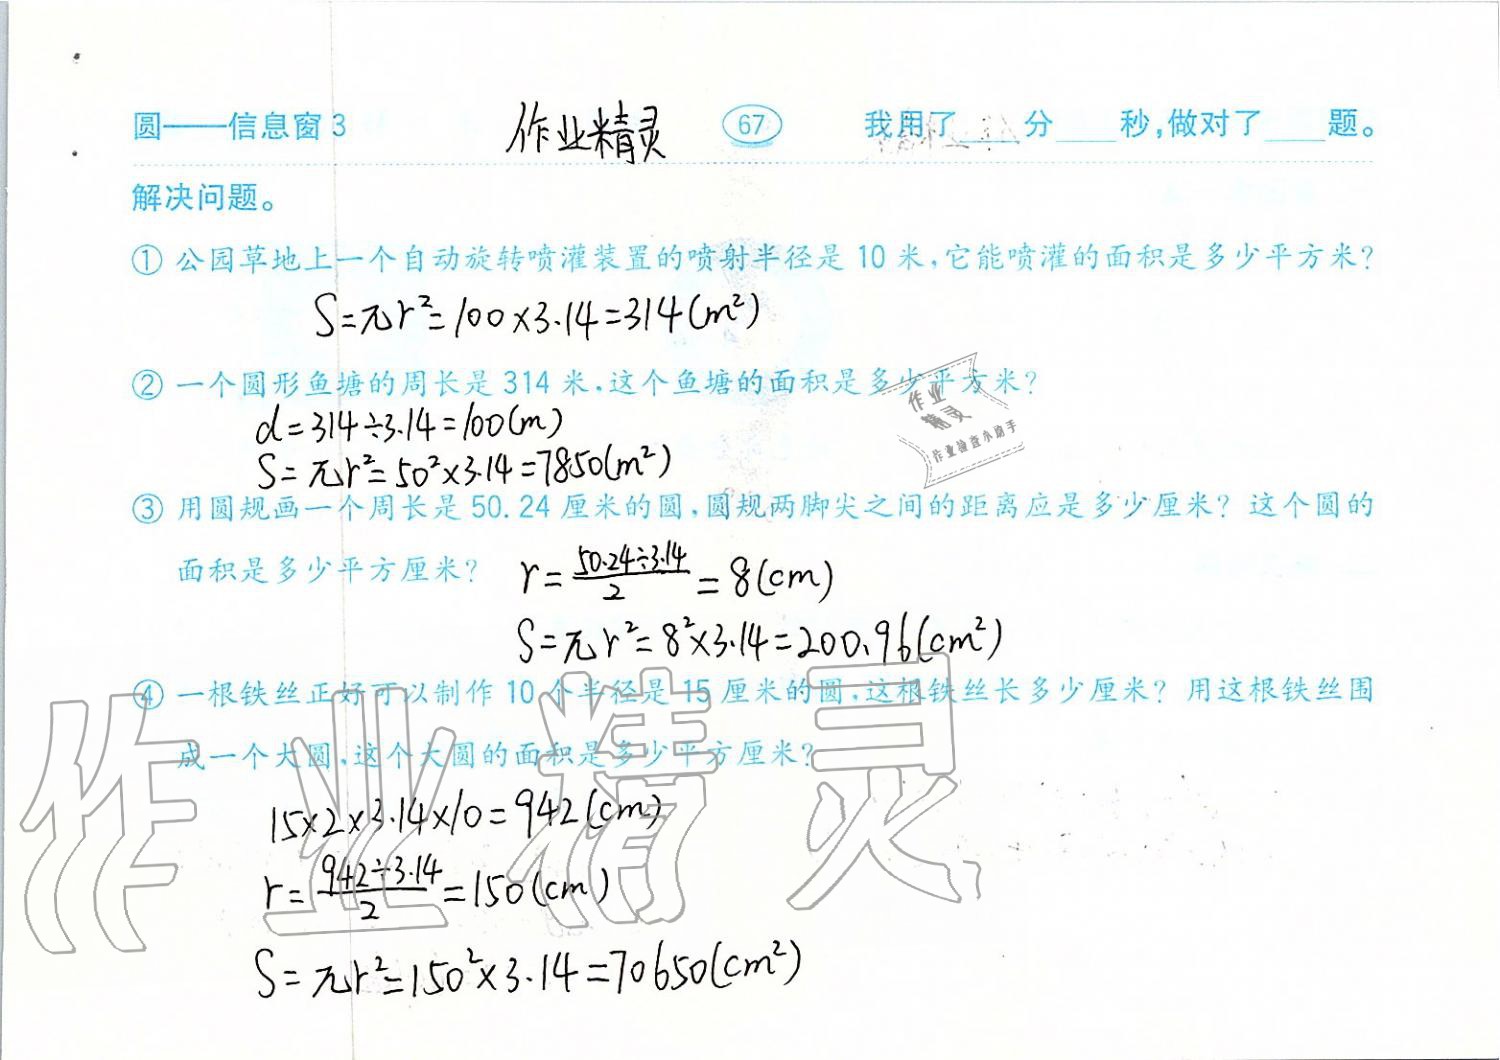 圆——信息窗3 作业精灵 67 我用了____分____秒,做对了____题。
解决问题。
① 公园草地上一个自动旋转喷灌装置的喷射半径是 10 米,它能喷灌的面积是多少平方米?
S=πr²=100×3.14=314(m²)
② 一个圆形鱼塘的周长是 314 米,这个鱼塘的面积是多少平方米?
d=314÷3.14=100(m)
S=πr²=50²×3.14=7850(m²)
作业
精灵
作业检查小助手
③ 用圆规画一个周长是 50.24 厘米的圆,圆规两脚尖之间的距离应是多少厘米? 这个圆的
面积是多少平方厘米?
r=50.24÷3.14/2=8(cm)
S=πr²=8²×3.14=200.96(cm²)
④ 一根铁丝正好可以制作 10 个半径是 15 厘米的圆,这根铁丝长多少厘米? 用这根铁丝围
成一个大圆,这个大圆的面积是多少平方厘米?
作业精灵
15×2×3.14×10=942(cm)
r=942÷3.14/2=150(cm)
S=πr²=150²×3.14=70650(cm²)